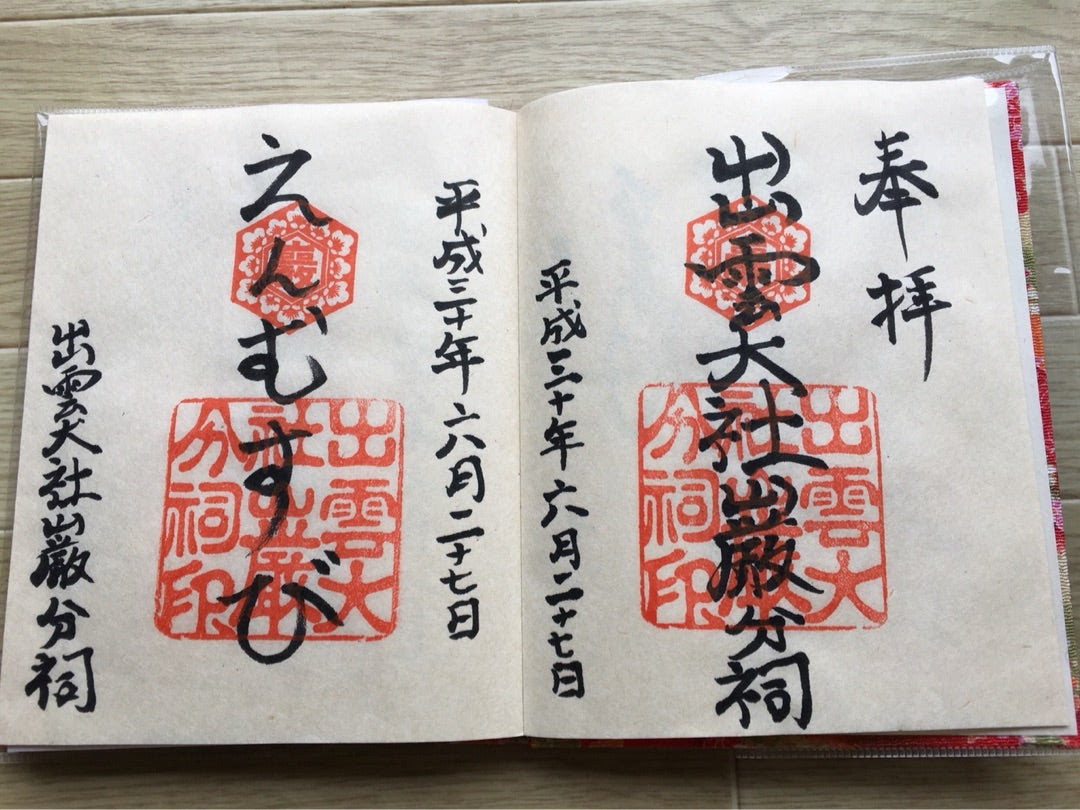 奉拝
出雲大社巌分祠
平成三十年六月二十七日
出雲大社巌分祠印
平成三十年六月二十七日
えんむすび
出雲大社巌分祠
出雲大社巌分祠印